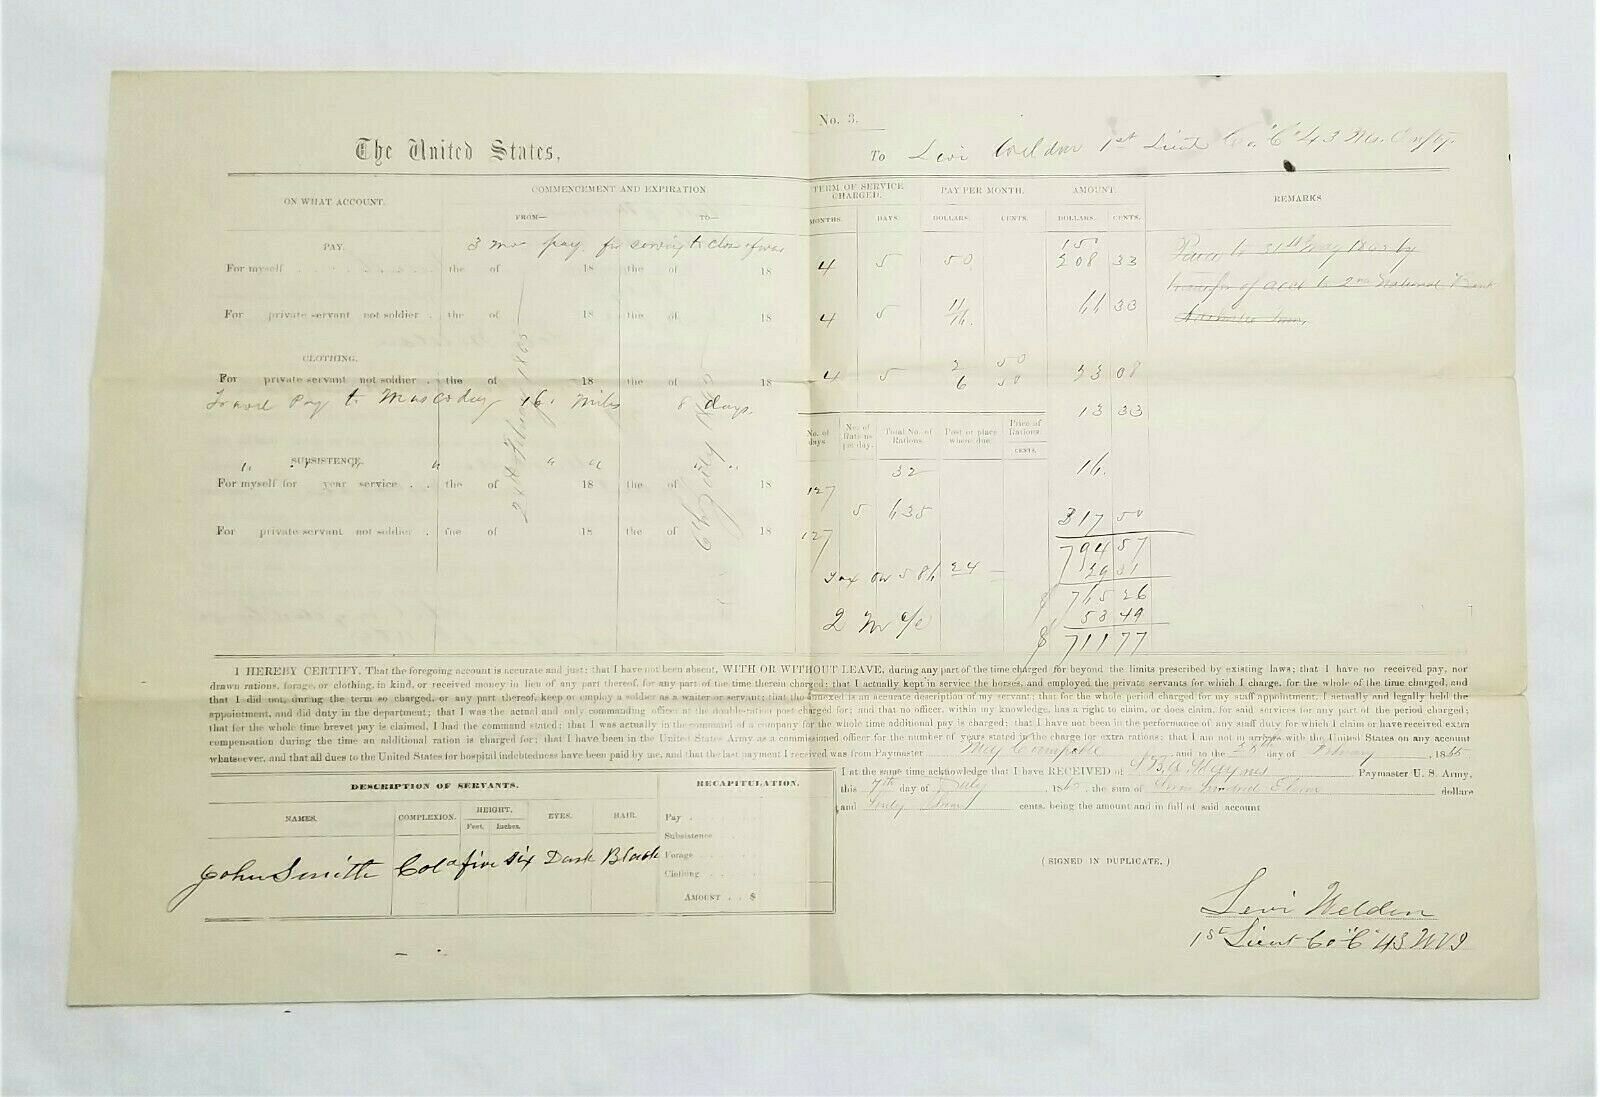 No. 3.
The United States,
To Levi Welden 1st Lieut Co. "C" 43 Wis. Infty.
ON WHAT ACCOUNT.
COMMENCEMENT AND EXPIRATION
FROM—
TO—
TERM OF SERVICE CHARGED.
MONTHS.
DAYS.
PAY PER MONTH.
DOLLARS.
CENTS.
AMOUNT.
DOLLARS.
CENTS.
REMARKS
PAY.
3 mos pay for serving to close of war
150
For myself the of 18 the of 18
4 5 50 208 33
Paid to 31st May 1865 by
transfer of acct to 2nd National Bank
For private servant not soldier . the of 18 the of 18
4 5 11/16. 66 33
CLOTHING.
For private servant not soldier . the of 18 the of 18
4 5 2 50
6 50
33 08
Travel Pay to Muscoday 160 Miles 8 days.
13 33
No. of days.
No. of Rations per day.
Total No. of Rations.
Post or place where due.
Price of Rations.
CENTS.
SUBSISTENCE.
" " " " " " " "
32
16.
For myself for year service . . the of 18 the of 18
127 5 635
317 50
For private servant not soldier . the of 18 the of 18
127
794 57
6th July 1865
Tax on 586 24
29 31
$ 765 26
2 Mo c/c
53 49
$ 711 77
I HEREBY CERTIFY, That the foregoing account is accurate and just; that I have not been absent, WITH OR WITHOUT LEAVE, during any part of the time charged for beyond the limits prescribed by existing laws; that I have no received pay, nor
drawn rations, forage, or clothing, in kind, or received money in lieu of any part thereof, for any part of the time therein charged; that I actually kept in service the horses, and employed the private servants for which I charge, for the whole of the time charged, and
that I did not, during the term so charged, or any part thereof, keep or employ a soldier as a waiter or servant; that the annexed is an accurate description of my servant; that for the whole period charged for my staff appointment, I actually and legally held the
appointment, and did duty in the department; that I was the actual and only commanding officer at the double-ration post charged for; and that no officer, within my knowledge, has a right to claim, or does claim, for said services for any part of the period charged;
that for the whole time brevet pay is claimed, I had the command stated; that I was actually in the command of a company for the whole time additional pay is charged; that I have not been in the performance of any staff duty for which I claim or have received extra
compensation during the time an additional ration is charged for; that I have been in the United States Army as a commissioned officer for the number of years stated in the charge for extra rations; that I am not in arrears with the United States on any account
whatsoever, and that all dues to the United States for hospital indebtedness have been paid by me, and that the last payment I received was from Paymaster and to the 28th day of February , 1865
I at the same time acknowledge that I have RECEIVED of Maynes Paymaster U. S. Army,
this 7th day of July , 186 , the sum of Seven hundred Eleven dollars
and Seventy Seven cents, being the amount and in full of said account
DESCRIPTION OF SERVANTS.
NAMES.
COMPLEXION.
HEIGHT.
Feet.
Inches.
EYES.
HAIR.
John Smith Cold five six Dark Black
RECAPITULATION.
Pay .
Subsistence
Forage .
Clothing .
AMOUNT . . $
(SIGNED IN DUPLICATE.)
Levi Welden
1st Lieut Co "C" 43 WVI